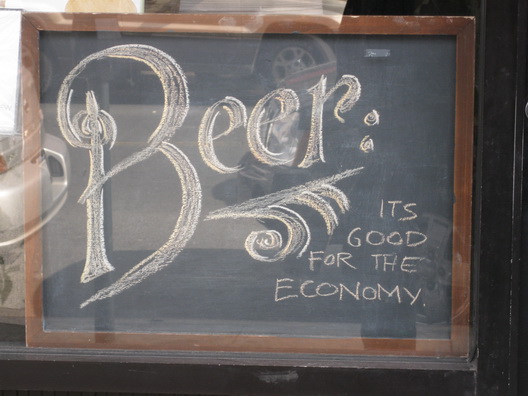 Beer:
ITS
GOOD
FOR THE
ECONOMY.